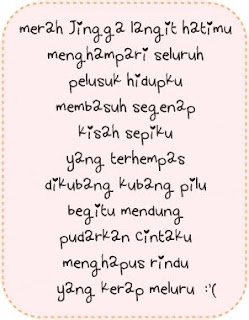 merah Jingga langit hatimu
menghampari seluruh
pelusuk hidupku
membasuh segenap
kisah sepiku
yang terhempas
dikubang kubang pilu
begitu mendung
pudarkan Cintaku
menghapus rindu
yang kerap meluru :'(